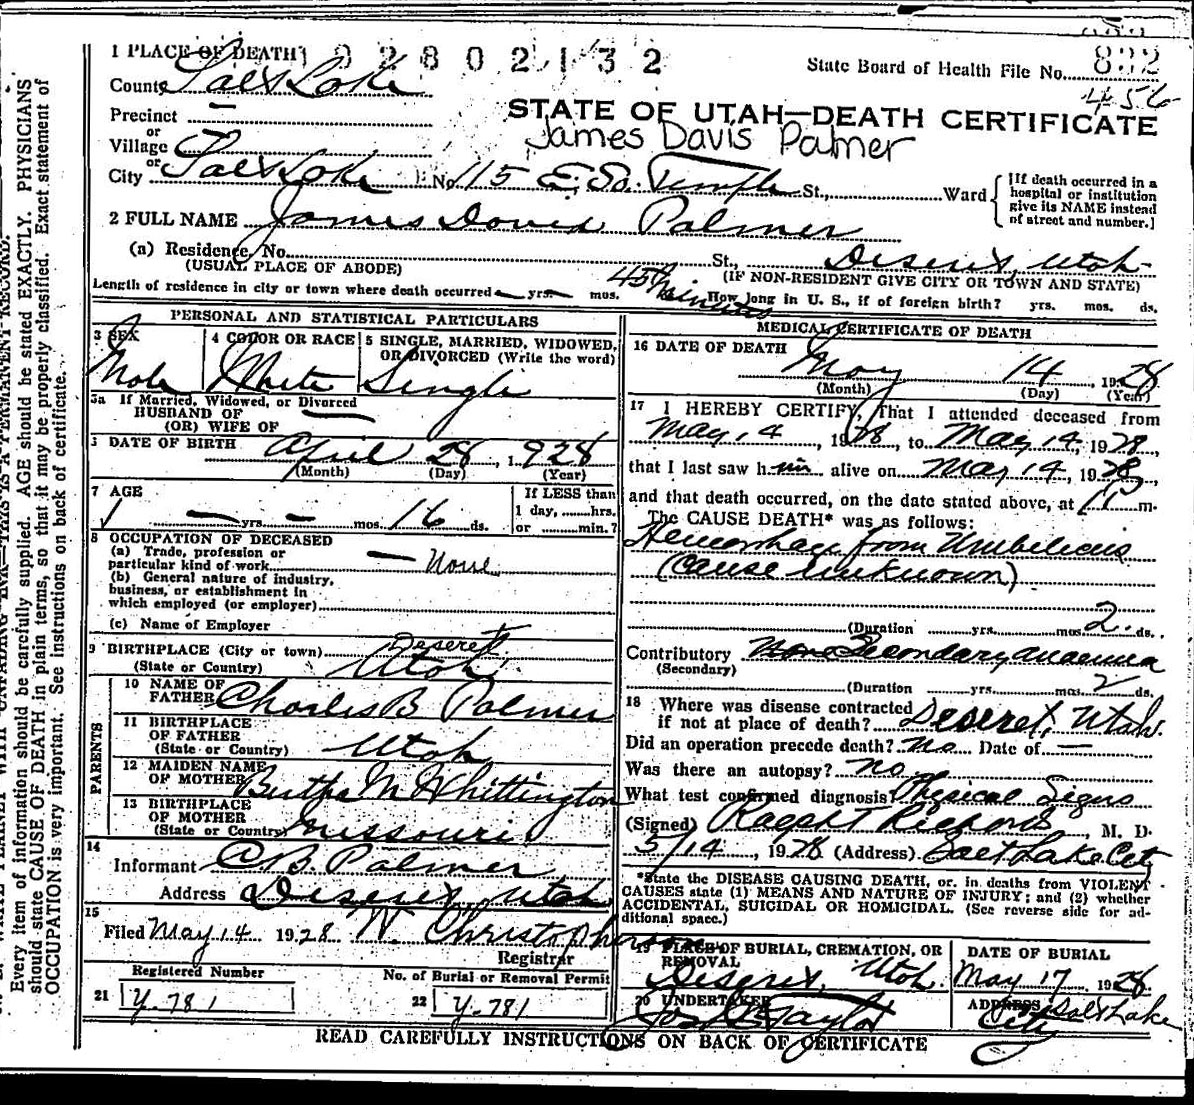 1 PLACE OF DEATH 9 2 8 0 2 1 3 2
State Board of Health File No. 832
456
County Salt Lake
STATE OF UTAH—DEATH CERTIFICATE
Precinct —
or
Village
James Davis Palmer
or
City Salt Lake No. 115 E. So. Temple St., Ward
[If death occurred in a hospital or institution give its NAME instead of street and number.]
2 FULL NAME James David Palmer
(a) Residence, No. St., Deseret, Utah
(USUAL PLACE OF ABODE) (IF NON-RESIDENT GIVE CITY OR TOWN AND STATE)
Length of residence in city or town where death occurred — yrs. — mos. 45 minutes How long in U. S., if of foreign birth? yrs. mos. ds.
PERSONAL AND STATISTICAL PARTICULARS
3 SEX
Male
4 COLOR OR RACE
White
5 SINGLE, MARRIED, WIDOWED, OR DIVORCED (Write the word)
Single
5a If Married, Widowed, or Divorced
HUSBAND OF —
(OR) WIFE OF
DATE OF BIRTH April 28, 1928
(Month) (Day) (Year)
7 AGE
— yrs. — mos. 16 ds.
If LESS than 1 day, hrs. or min.?
8 OCCUPATION OF DECEASED
(a) Trade, profession or
particular kind of work — None
(b) General nature of industry,
business, or establishment in
which employed (or employer)
(c) Name of Employer
9 BIRTHPLACE (City or town) Deseret
(State or Country) Utah
PARENTS
10 NAME OF FATHER Charles B Palmer
11 BIRTHPLACE OF FATHER (State or Country) Utah
12 MAIDEN NAME OF MOTHER Bertha M Whittington
13 BIRTHPLACE OF MOTHER (State or Country) Missouri
14
Informant C B. Palmer
Address Deseret, Utah
15
Filed May 14 1928 N. Christopherson
Registrar
Registered Number
21 Y-781
No. of Burial or Removal Permit
22 Y-781
MEDICAL CERTIFICATE OF DEATH
16 DATE OF DEATH
May 14, 1928
(Month) (Day) (Year)
17 I HEREBY CERTIFY, That I attended deceased from
May 14, 1928, to May 14, 1928,
that I last saw him alive on May 14, 1928,
and that death occurred, on the date stated above, at 1 P m.
The CAUSE DEATH* was as follows:
Hemorrhage from Umbilicus
(cause unknown)
(Duration yrs. mos. 2 ds.
Contributory None Secondary anaemia
(Secondary)
(Duration yrs. mos. 2 ds.
18 Where was disease contracted
if not at place of death? Deseret, Utah.
Did an operation precede death? no Date of —
Was there an autopsy? no
What test confirmed diagnosis? Physical Signs
(Signed) Ralph T Richards, M. D.
5/14, 1928 (Address) Salt Lake City
*State the DISEASE CAUSING DEATH, or in deaths from VIOLENT
CAUSES state (1) MEANS AND NATURE OF INJURY; and (2) whether
ACCIDENTAL, SUICIDAL OR HOMICIDAL. (See reverse side for ad-
ditional space.)
19 PLACE OF BURIAL, CREMATION, OR REMOVAL
Deseret, Utah.
DATE OF BURIAL
May 17, 1928
20 UNDERTAKER
Taylor
ADDRESS Salt Lake
City
READ CAREFULLY INSTRUCTIONS ON BACK OF CERTIFICATE
Every item of information should be carefully supplied. AGE should be stated EXACTLY. PHYSICIANS
should state CAUSE OF DEATH in plain terms, so that it may be properly classified. Exact statement of
OCCUPATION is very important. See instructions on back of certificate.